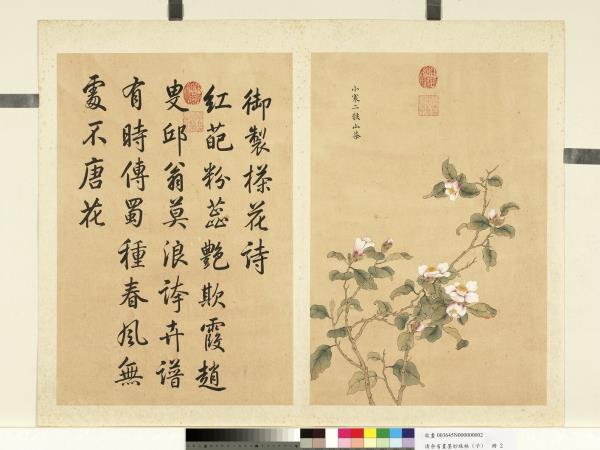 小寒二候山茶
御製𣘻花詩
紅葩粉蕊艷欺霞趙
叟邱翁莫浪誇卉譜
有時傳蜀種春風無
處不唐花
故畫 003645N000000002
清余省畫墨妙珠林(子) 冊 2